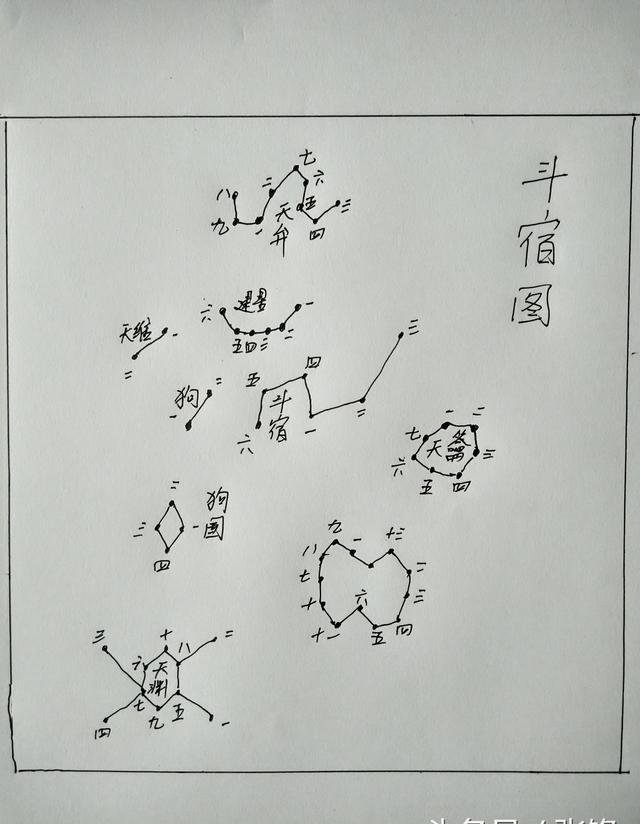 斗宿图
七
八
二
六
天弁
五
三
九
一
四
建星
六
一
五
四
三
二
天维
一
二
狗
二
一
三
四
五
斗宿
六
一
二
一
二
七
天
三
六
五
四
二
狗国
三
一
四
九
一
十三
八
二
七
三
十
六
十一
五
四
三
十
八
二
六
天渊
七
五
四
九
一